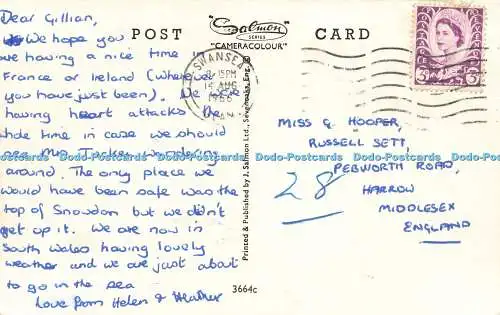 Dear Gillian,
We hope you
are having a nice time in
France or Ireland (Wherever
you have just been). We were
having heart attacks the
whole time in case we should
see Mrs wandering
around. The only place we
would have been safe was the
top of Snowdon but we didn't
get up it. We are now in
South Wales having lovely
weather and we are just about
to go in the sea
Love from Helen & Heather
POST
Salmon
SERIES
"CAMERACOLOUR"
CARD
SWANSEA
15PM
AUG
1966
Printed & Published by J. Salmon Ltd., Sevenoaks, Eng. ©
3664c
3D
MISS G HOOPER,
RUSSELL SETT,
PEBWORTH ROAD,
HARROW
MIDDLESEX
ENGLAND
28
Dodo-Postcards Dodo-Postcards Dodo-Postcards Dodo-Postcards Dodo-Postcards